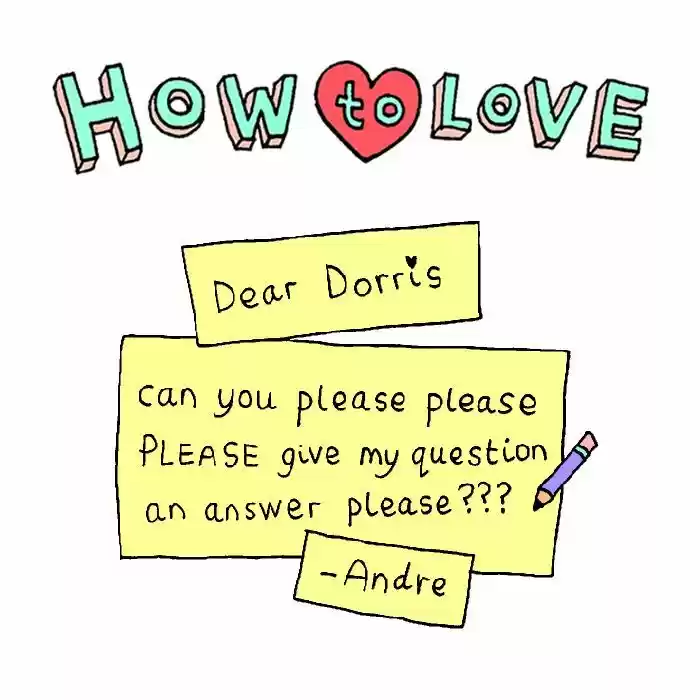 HOW to LOVE
Dear Dorris
can you please please
PLEASE give my question
an answer please???
-Andre